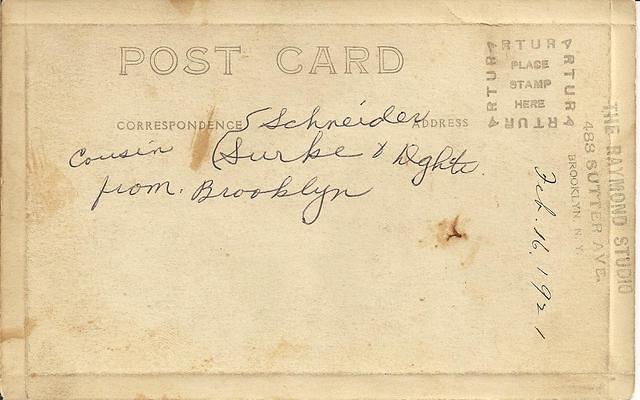 POST CARD
ARTURA
ARTURA
PLACE
STAMP
HERE
ARTURA
ARTURA
CORRESPONDENCE
ADDRESS
Schneider
Cousin Surke & Dghts.
from. Brooklyn
Feb. 16, 1921
THE RAYMOND STUDIO
488 SUTTER AVE.
BROOKLYN N. Y.